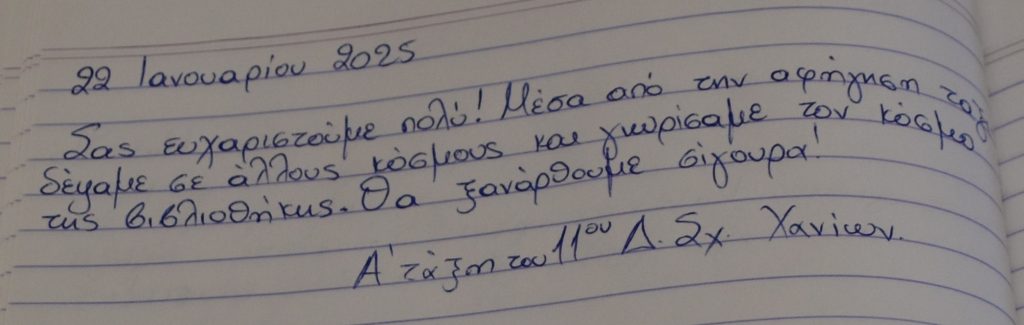 22 Ιανουαρίου 2025
Σας ευχαριστούμε πολύ! Μέσα από την αφήγηση ταξι
δέψαμε σε άλλους κόσμους και γνωρίσαμε τον κόσμο
της βιβλιοθήκης. Θα ξανάρθουμε σίγουρα!
Α' τάξη του 11ου Δ. Σχ. Χανίων.